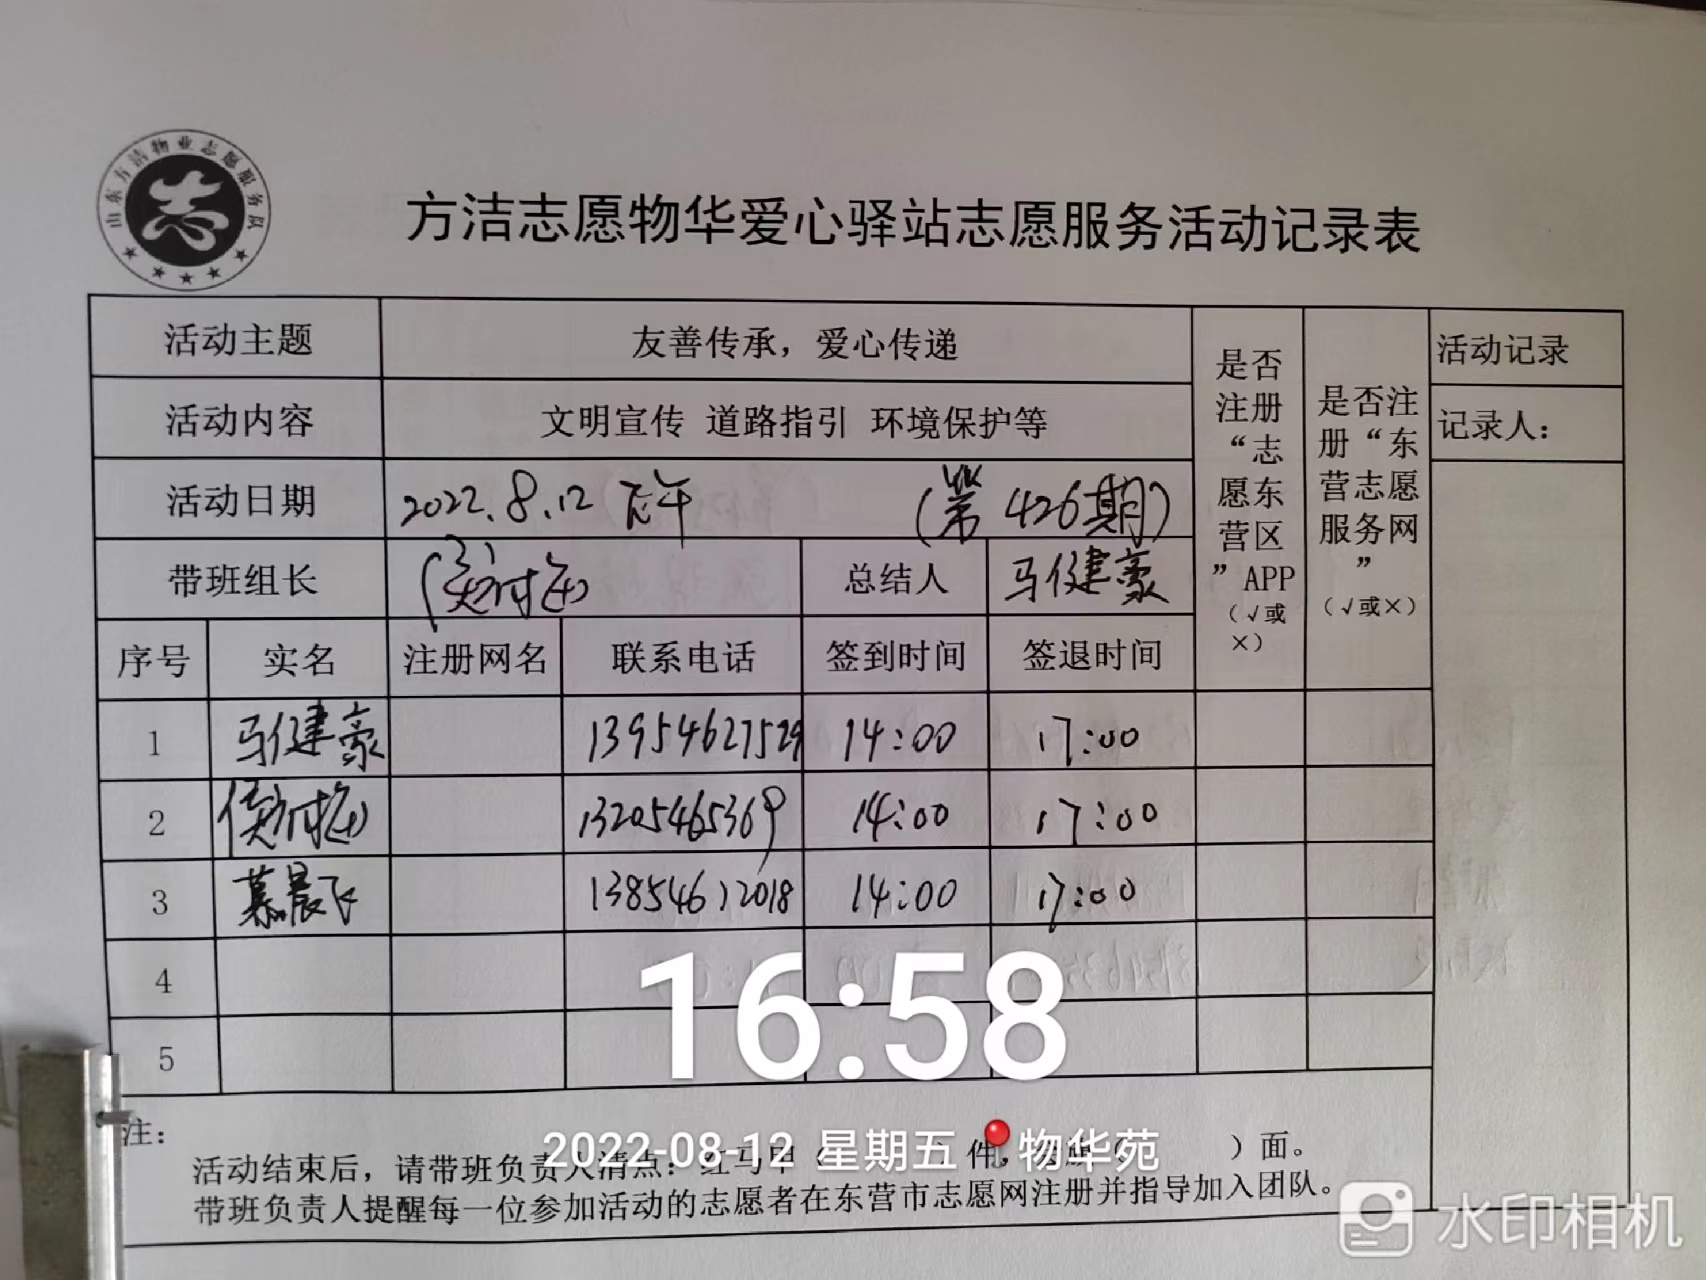 山东方洁物业志愿服务队
方洁志愿物华爱心驿站志愿服务活动记录表
活动主题 友善传承，爱心传递
活动内容 文明宣传 道路指引 环境保护等
活动日期 2022.8.12 下午 （第426期）
带班组长 总结人 马健豪
是否注册“志愿东营区”APP（√或×）
是否注册“东营志愿服务网”（√或×）
活动记录
记录人：
序号 实名 注册网名 联系电话 签到时间 签退时间
1 马健豪 13954627529 14:00 17:00
2 13205465369 14:00 17:00
3 慕晨飞 13854612018 14:00 17:00
4
5
16:58
2022-08-12 星期五 物华苑
注：
活动结束后，请带班负责人清点：红马甲（ ）件， （ ）面。
带班负责人提醒每一位参加活动的志愿者在东营市志愿网注册并指导加入团队。
水印相机